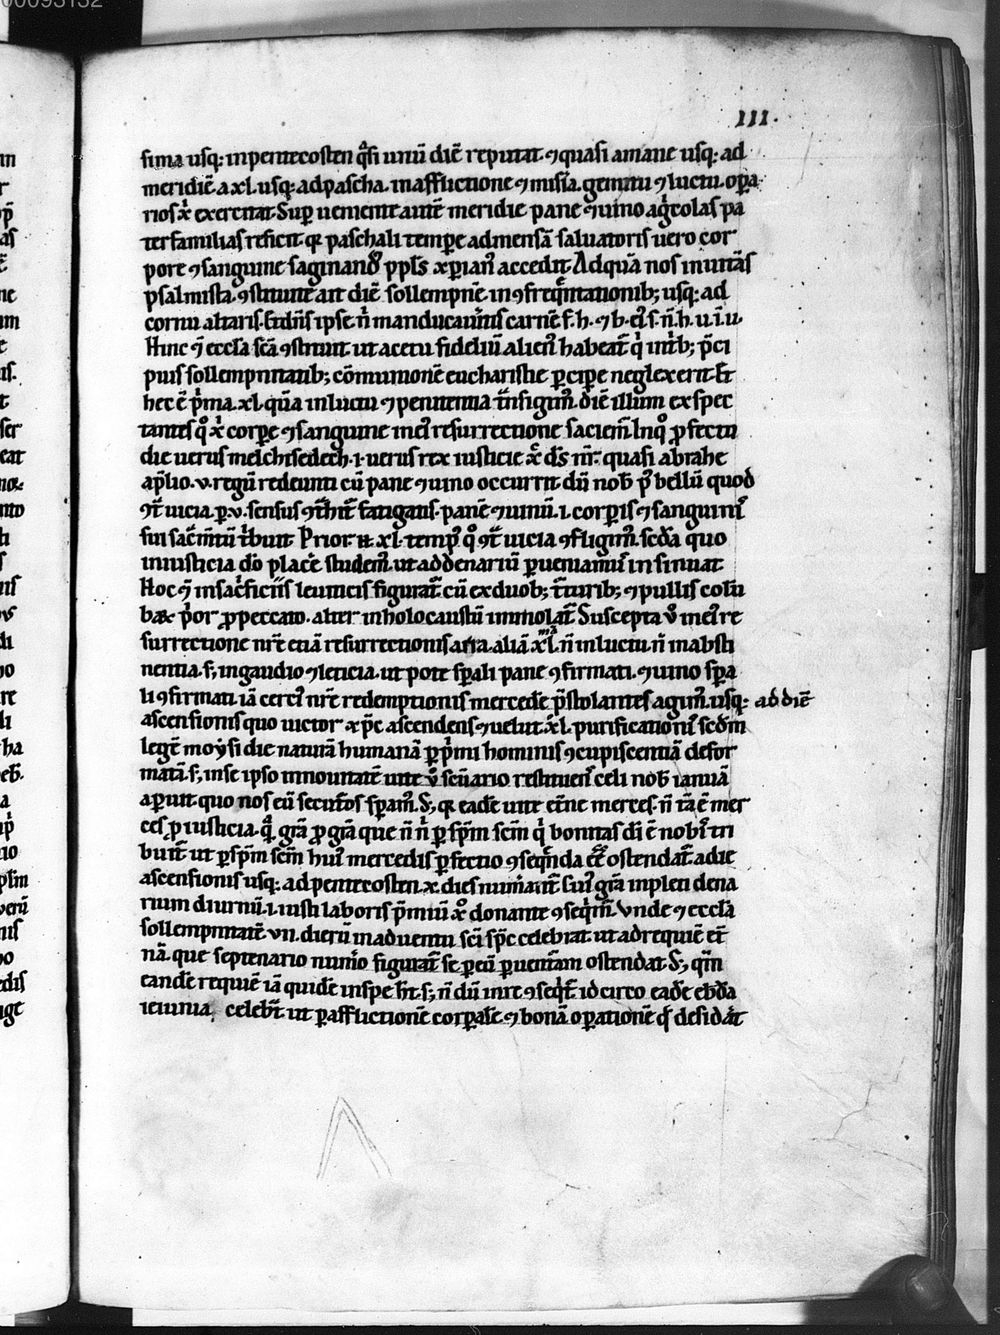 00095132
III.
sima usq; inpentecosten q̃si unũ diẽ reputat. ⁊quasi amane usq; ad
meridiẽ a xl. usq; adpascha. inafflictione ⁊misia. gemitu ⁊luctu. opa
rios x̃ exercitat. Sup ueniente autẽ meridie pane ⁊uino ag̃colas pa
terfamilias reficit. qꝛ paschali tempe admensã saluatoris uero cor
pore ⁊sanguine saginand᷒ ppl's xpian᷒ accedit. Adquã nos inuitãs
psalmista. ꝯstituite ait diẽ sollempnẽ in ꝯfreq̃ntationib; usq; ad
cornu altaris. Et dñs ipse ñ manducauitis carnẽ f. h. ⁊ b. ei᷒ s. ñ. h. u. i. u.
Hinc ⁊ eccl̃a sc̃a ꝯstituit. ut acetu fideliũ alien᷒ habeat̃ q̃ in trib; p̃ci
puis sollempnitatib; cõmunionẽ eucharistie ꝑcipe neglexerit. Et
hec ẽ p̃ma. xl. quã inluctu ⁊penitentia t̃nsigim᷒. diẽ illum exspec
tantes q᷒ x̃ corpe ⁊sanguine inei᷒ resurrectione saciem᷒. Inq᷒ ꝓfecto
die uerus melchisedech. i. uerus rex iusticie x̃ d̃s nr̃. quasi abrahe
ap̃lio. v. regũ redeunti cũ pane ⁊uino occurrit. dũ nob̃ p᷒ bellũ quod
ꝯt̃ uicia. ꝑ. v. sensus ꝯt̃hit fatigatis. panẽ ⁊uinũ. i. corporis ⁊sanguinis
sui sac̃mtũ t̃buit. Prior ẽ xl. temp᷒ q᷒ ꝯt̃ uicia ꝯfligim᷒. sc̃da quo
iniusticia d̃o place᷒ studem᷒. ut addenariũ ꝑueniamus insinuat.
Hoc ⁊ insac̃ficiis leuiticis figurat̃. cũ ex duob; t̃turib; ⁊pullis colũ
baꝝ p̃or ꝓpeccato. alter inholocaustũ immolat̃. Suscepta v᷒ inei᷒ re
surrectione nr̃e etiã resurrectionis arra. aliã xl.mã ñ inluctu. ñ inabsti
nentia. s; ingaudio ⁊leticia. ut pote sp̃ali pane ꝯfirmati. ⁊uino sp̃a
li ꝯfirmati. iã certi᷒ nr̃e redemptionis mercedẽ p̃stolantes agim᷒. usq; ad diẽ
ascensionis quo uictor xp̃c ascendens ⁊uelut. xl. purificationis scd̃m
legẽ moysi die naturã humanã ꝑp̃mi hominis ꝯcupiscentiã defor
matã. s; inse ipso innouatẽ uite v᷒ senario restituens celi nob̃ ianuã
aꝑuit quo nos eũ secut᷒os sꝑam᷒. S; qꝛ eadẽ uite et̃ne merces. ñ tã ẽ mer
ces ꝓ iusticia. q̃ gr̃a ꝓ gr̃a que ñ ñ ꝑ sp̃m scm̃ q̃ bonitas di ẽ nobis tri
buit̃ ut ꝑ sp̃m scm̃ hui᷒ mercedis ꝑfectio ꝯseq̃nda ẽẽ ostendat̃. adie
ascensionis usq; adpentecosten. x. dies numant̃. Cui᷒ gr̃a impleti dena
rium diurnũ. i. iusti laboris p̃miũ x᷒ donante ꝯseq̃m᷒. Vnde ⁊ eccl̃a
sollempnitatẽ VII. dierũ inaduentu sc̃i sp̃c celebrat. ut adrequiẽ et̃
nã. que septenario num᷒o figurat̃ se ꝑ eũ ꝑuenturam ostendat. S; q̃m
eandẽ requiẽ iã quidẽ inspe h̃t. s; ñ dũ in re ꝯseq̃t̃. idcirco eadẽ ebd̃a
ieiunia celebr̃t. ut ꝑafflictionẽ corpale ⁊ bonã operationẽ q᷒ desidãt